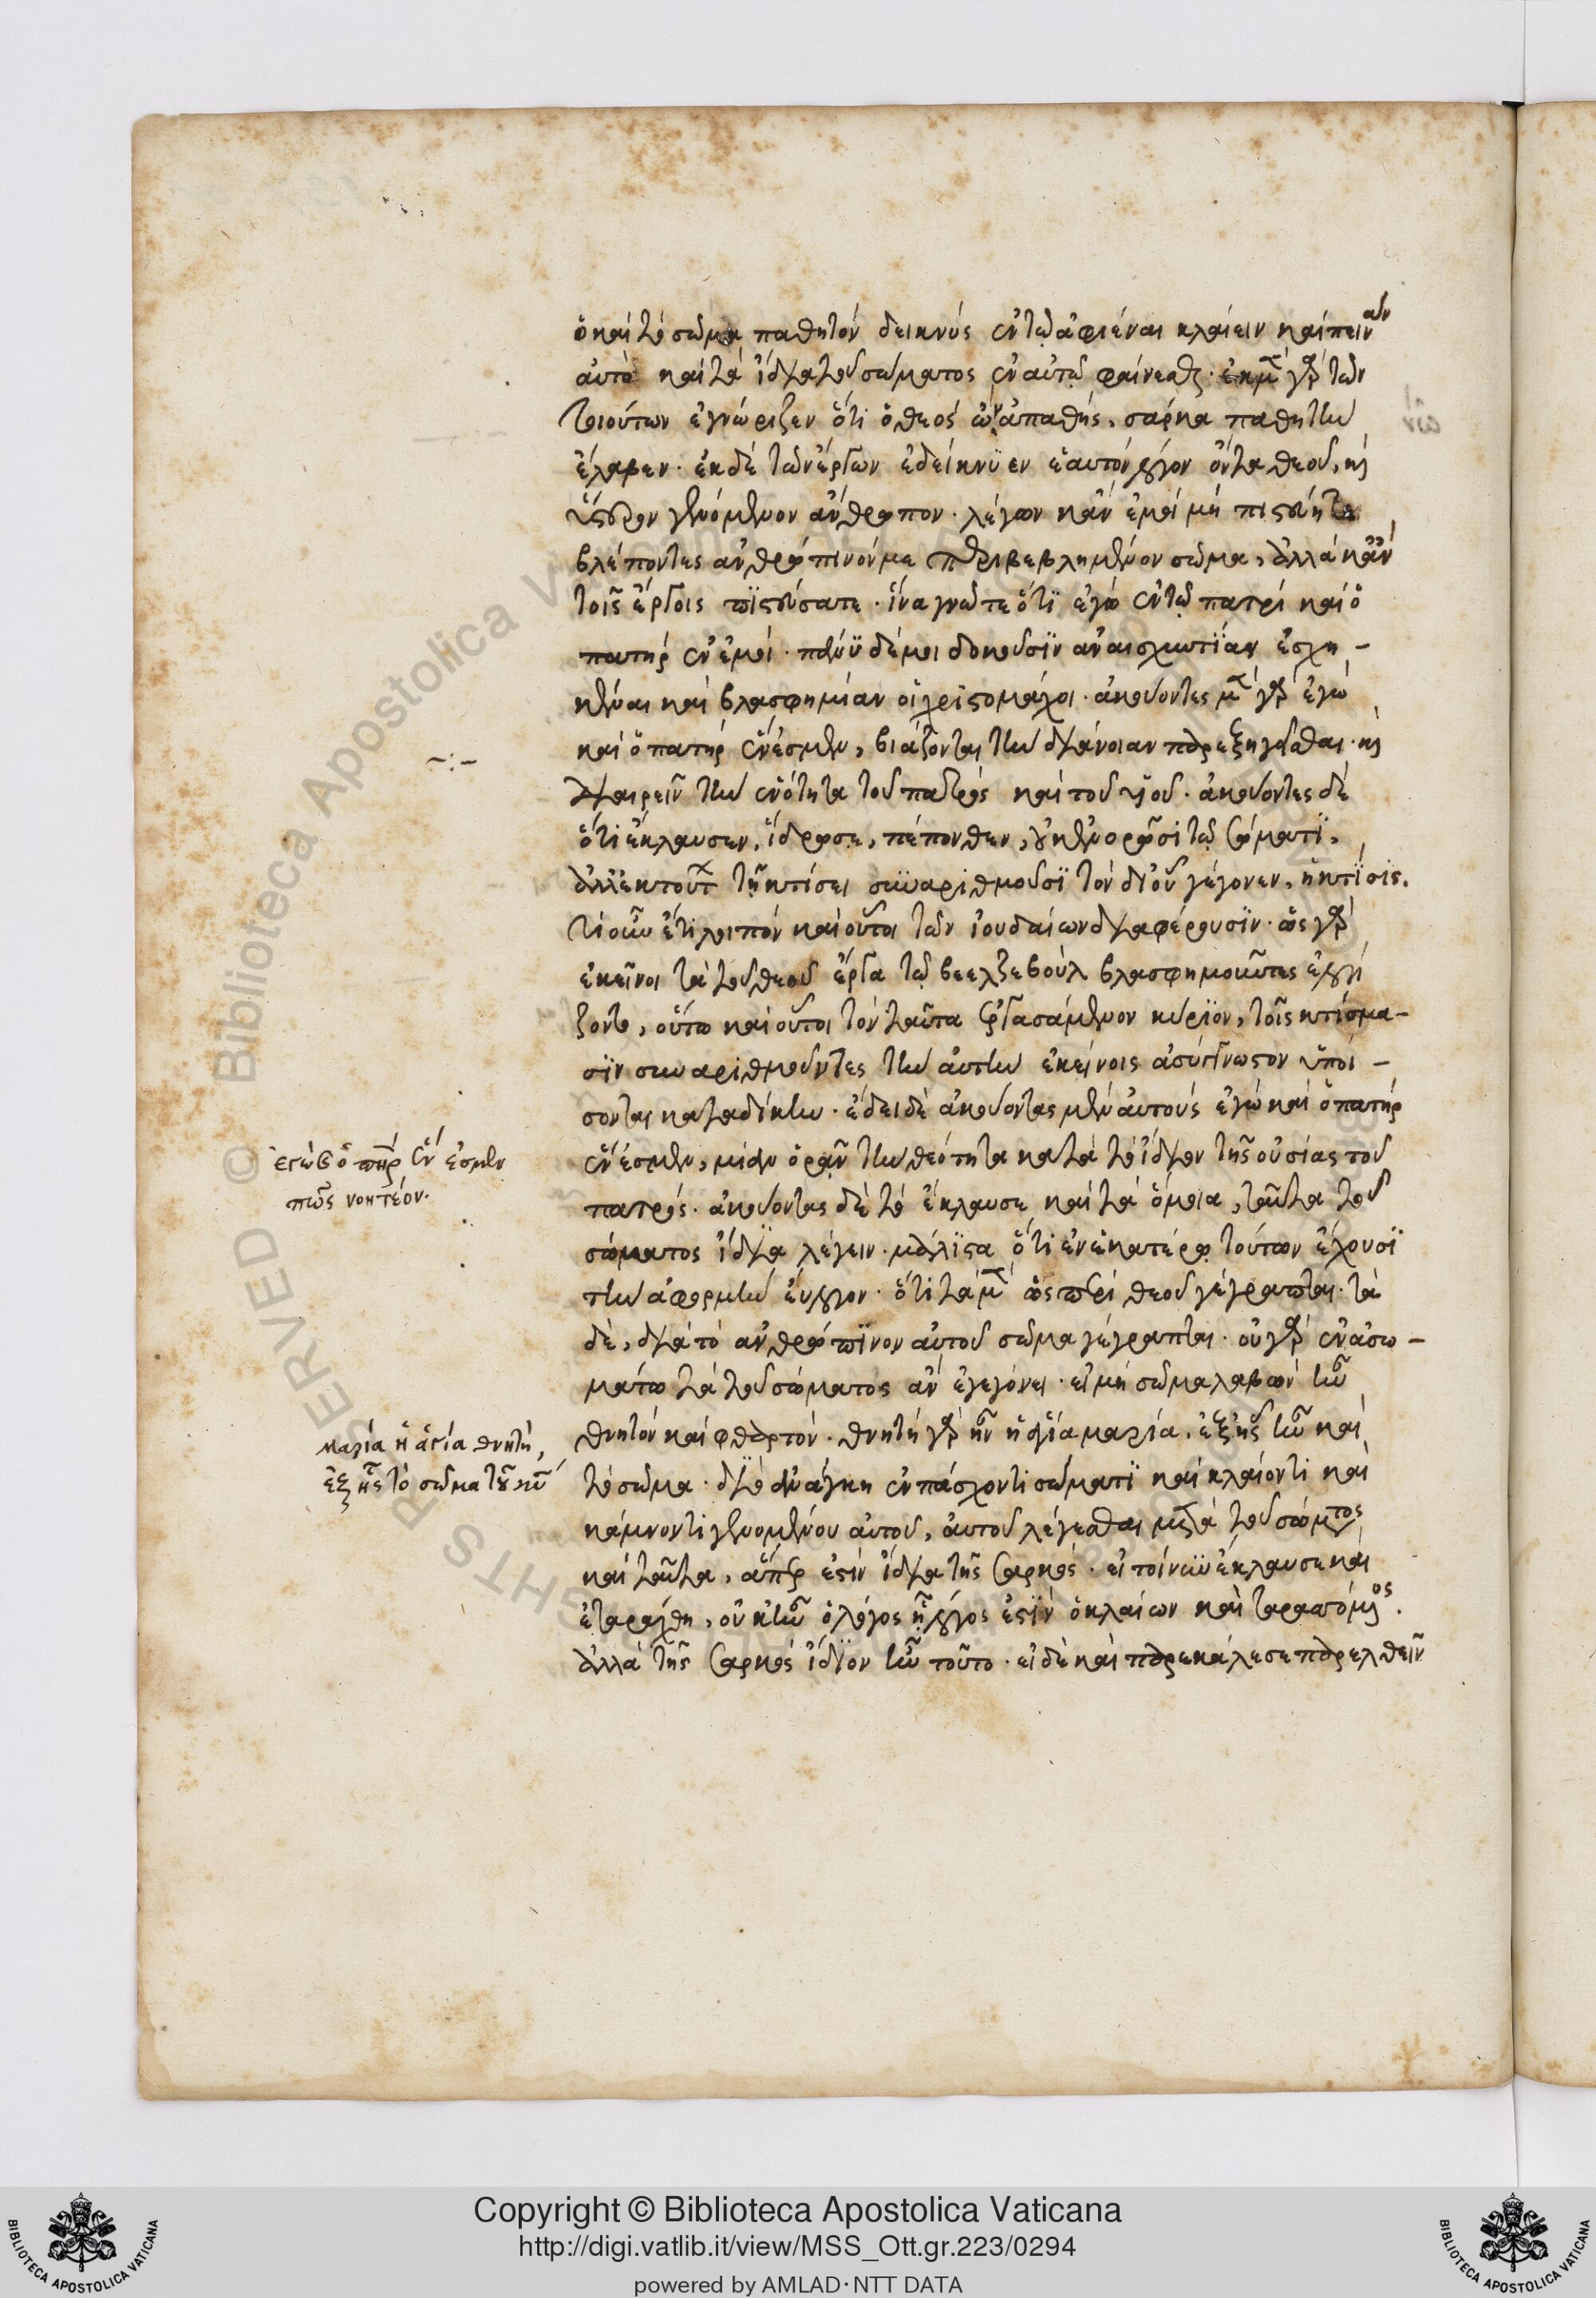 ὁ καὶ τὸ σῶμα παθητὸν δεικνὺς ἐν τῷ ἀφιέναι κλαίειν καὶ πεινᾶν
αὐτὸ καὶ τὰ ἴδια τοῦ σώματος ἐν αὐτῷ φαίνεσθαι· ἐκ μὲν γὰρ τῶν
τοιούτων ἐγνώριζεν ὅτι ὁ θεὸς ὢν ἀπαθὴς, σάρκα παθητὴν
ἔλαβεν· ἐκ δὲ τῶν ἔργων ἐδείκνυεν ἑαυτὸν λόγον ὄντα θεοῦ, καὶ
ὕστερον γενόμενον ἄνθρωπον· λέγων κἂν ἐμοὶ μὴ πιστεύητε
βλέποντες ἀνθρώπινόν με περιβεβλημένον σῶμα, ἀλλὰ κἂν
τοῖς ἔργοις πιστεύσατε· ἵνα γνῶτε ὅτι ἐγὼ ἐν τῷ πατρὶ καὶ ὁ
πατὴρ ἐν ἐμοί· πάνυ δέ μοι δοκοῦσιν ἀναισχυντίαν ἐσχη-
κέναι καὶ βλασφημίαν οἱ χριστομάχοι· ἀκούοντες μὲν γὰρ ἐγὼ
καὶ ὁ πατὴρ ἕν ἐσμεν, βιάζονται τὴν διάνοιαν παρεξηγεῖσθαι· καὶ
διαιρεῖν τὴν ἑνότητα τοῦ πατρὸς καὶ τοῦ υἱοῦ· ἀκούοντες δὲ
ὅτι ἔκλαυσεν, ἵδρωσε, πέπονθεν, οὐκ ἐνορῶσι τῷ σώματι,
ἀλλ' ἐκ τούτων τῇ κτίσει συναριθμοῦσι τὸν δι' οὗ γέγονεν, ἡ κτίσις.
τί οὖν ἔτι λοιπὸν καὶ οὗτοι τῶν ἰουδαίων διαφέρουσιν· ὡς γὰρ
ἐκεῖνοι τὰ τοῦ θεοῦ ἔργα τῷ βεελζεβοὺλ βλασφημοῦντες ἐλογί
ζοντο, οὕτω καὶ οὗτοι τὸν ταῦτα ἐργασάμενον κύριον, τοῖς κτίσμα-
σιν συναριθμοῦντες τὴν αὐτὴν ἐκείνοις ἀσύγγνωστον ὑποί-
σονται καταδίκην· ἔδει δὲ ἀκούοντας μὲν αὐτοὺς ἐγὼ καὶ ὁ πατὴρ
ἕν ἐσμεν, μίαν ὁρᾶν τὴν θεότητα κατὰ τὸ ἴδιον τῆς οὐσίας τοῦ
πατρός· ἀκούοντας δὲ τὸ ἔκλαυσε καὶ τὰ ὅμοια, ταῦτα τοῦ
σώματος ἴδια λέγειν· μάλιστα ὅτι ἐν ἑκατέρῳ τούτων ἔχουσι
τὴν ἀφορμὴν εὔλογον· ὅτι τὰ μὲν ὡς περὶ θεοῦ γέγραπται· τὰ
δὲ, διὰ τὸ ἀνθρώπινον αὐτοῦ σῶμα γέγραπται· οὐ γὰρ ἐν ἀσω-
μάτω τὰ τοῦ σώματος ἂν ἐγεγόνει· εἰ μὴ σῶμα λαβὼν ἦν
θνητὸν καὶ φθαρτόν· θνητὴ γὰρ ἦν ἡ ἁγία μαρία, ἐξ ἧς ἦν καὶ
τὸ σῶμα· διὸ ἀνάγκη ἐν πάσχοντι σώματι καὶ κλαίοντι καὶ
κάμνοντι γενομένου αὐτοῦ, αὐτοῦ λέγεσθαι μετὰ τοῦ σώματος
καὶ ταῦτα, ἅπερ ἐστὶν ἴδια τῆς σαρκός· εἰ τοίνυν ἔκλαυσε καὶ
ἐταράχθη, οὐκ ἦν ὁ λόγος ᾗ λόγος ἐστὶν ὁ κλαίων καὶ ταραττόμενος.
ἀλλὰ τῆς σαρκὸς ἴδιον ἦν τοῦτο· εἰ δὲ καὶ παρεκάλεσε παρελθεῖν
~:~
ἐγὼ καὶ ὁ πατὴρ ἕν ἐσμεν
πῶς νοητέον.
μαρία ἡ ἁγία θνητὴ,
ἐξ ἧς τὸ σῶμα τοῦ κυρίου
Copyright © Biblioteca Apostolica Vaticana
http://digi.vatlib.it/view/MSS_Ott.gr.223/0294
powered by AMLAD·NTT DATA
BIBLIOTECA APOSTOLICA VATICANA
BIBLIOTECA APOSTOLICA VATICANA